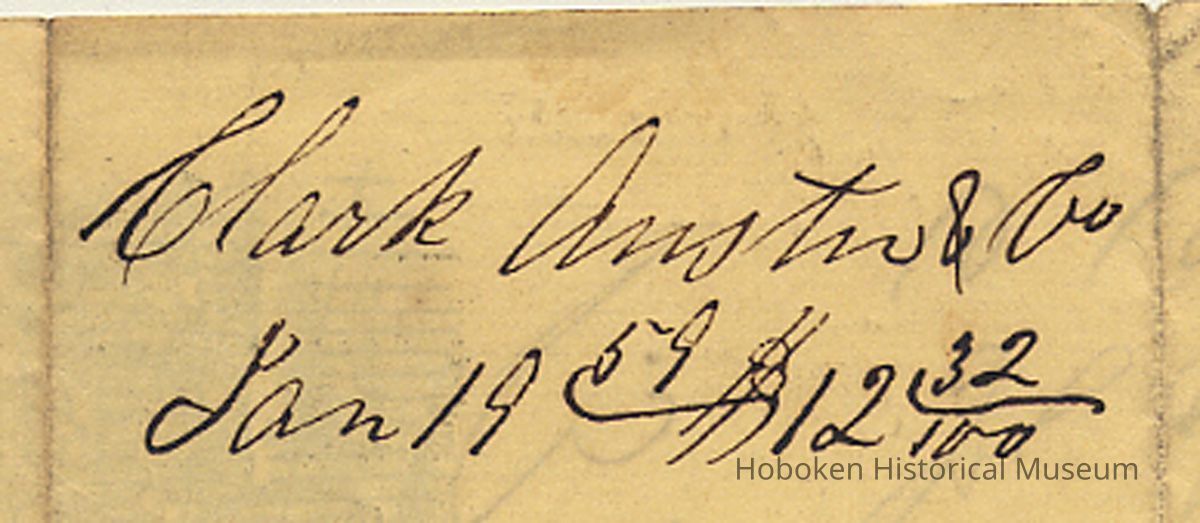 Clark Austin & Co
Jan 19 59 $12 32/100
Hoboken Historical Museum